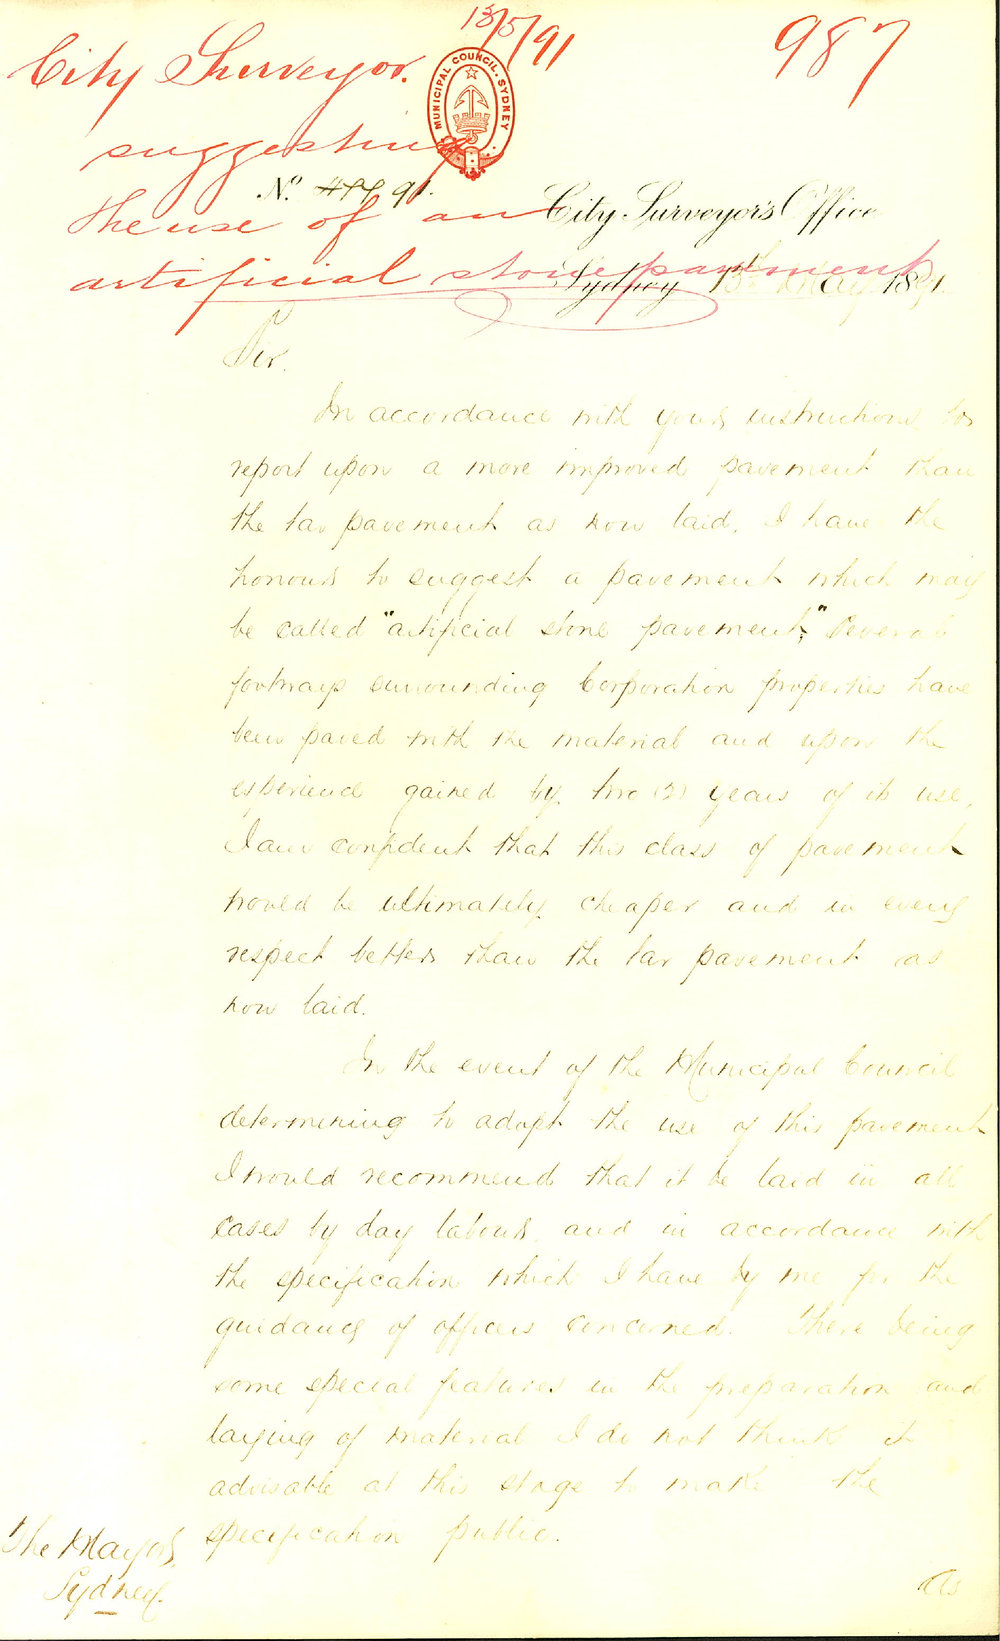 13/5/91
987
City Surveyor.
suggesting
the use of an
artificial stone pavement
MUNICIPAL COUNCIL. SYDNEY
No. 91.
City Surveyor's Office
Sydney 13th May 1891.
Sir.
In accordance with your instructions to
report upon a more improved pavement than
the tar pavement as now laid. I have the
honour to suggest a pavement which may
be called "artificial stone pavement;" Several
footways surrounding Corporation properties have
been paved with the material and upon the
experience gained by two (2) years of its use,
I am confident that this class of pavement
would be ultimately cheaper and in every
respect better than the tar pavement as
now laid.
In the event of the Municipal Council
determining to adopt the use of this pavement
I would recommend that it be laid in all
cases by day labour, and in accordance with
the specification which I have by me for the
guidance of officers concerned. There being
some special features in the preparation and
laying of material I do not think it
advisable at this stage to make the
specification public.
The Mayor,
Sydney.
As